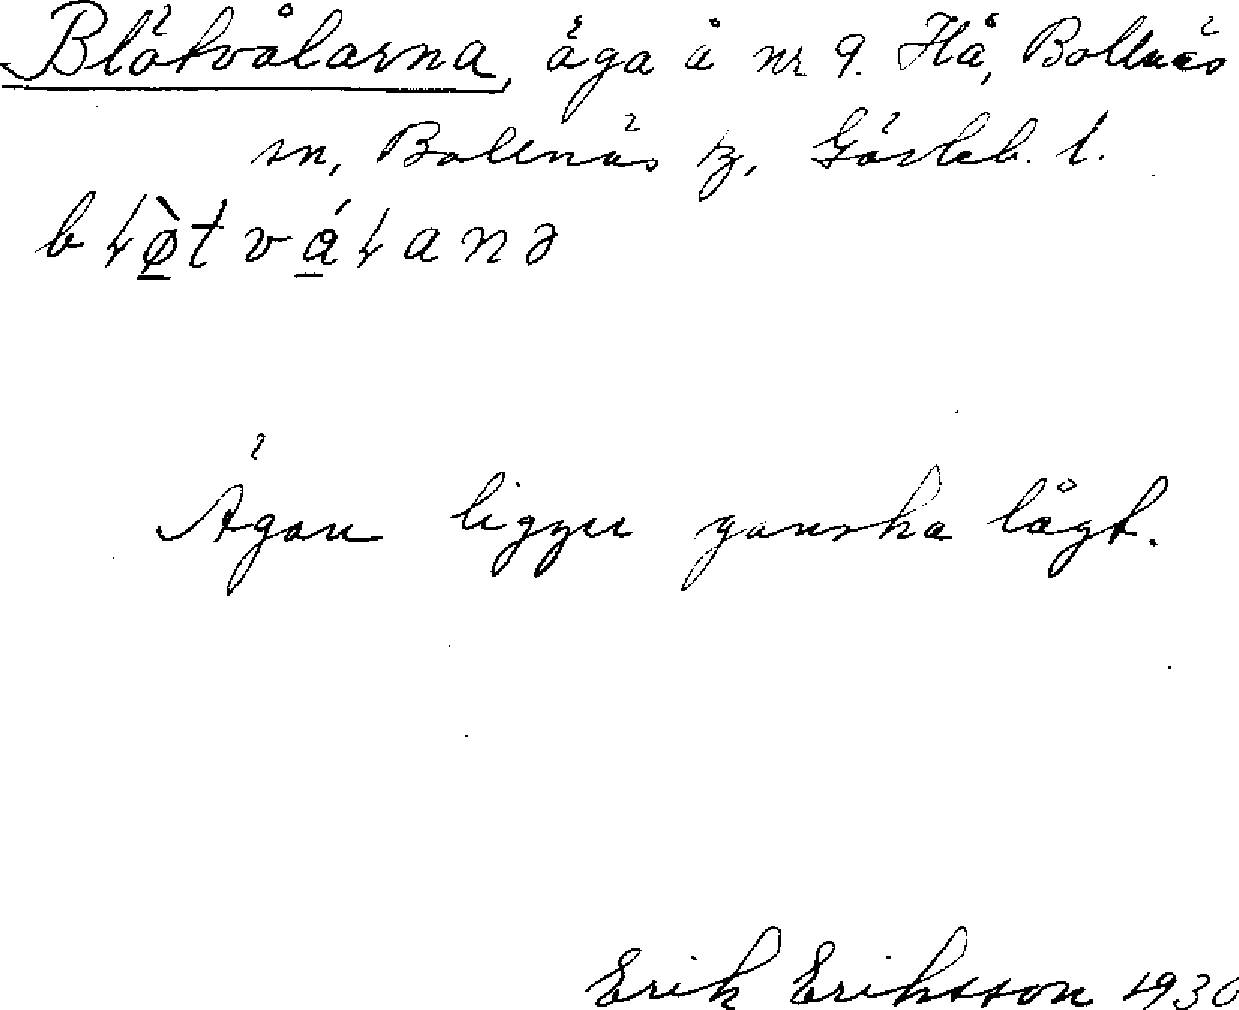 Blötvålarna, äga å nr 9. Hå, Bollnäs
sn, Bollnäs tg, Gävleb. l.
Ägan ligger ganska lågt.
Erik Eriksson 1930